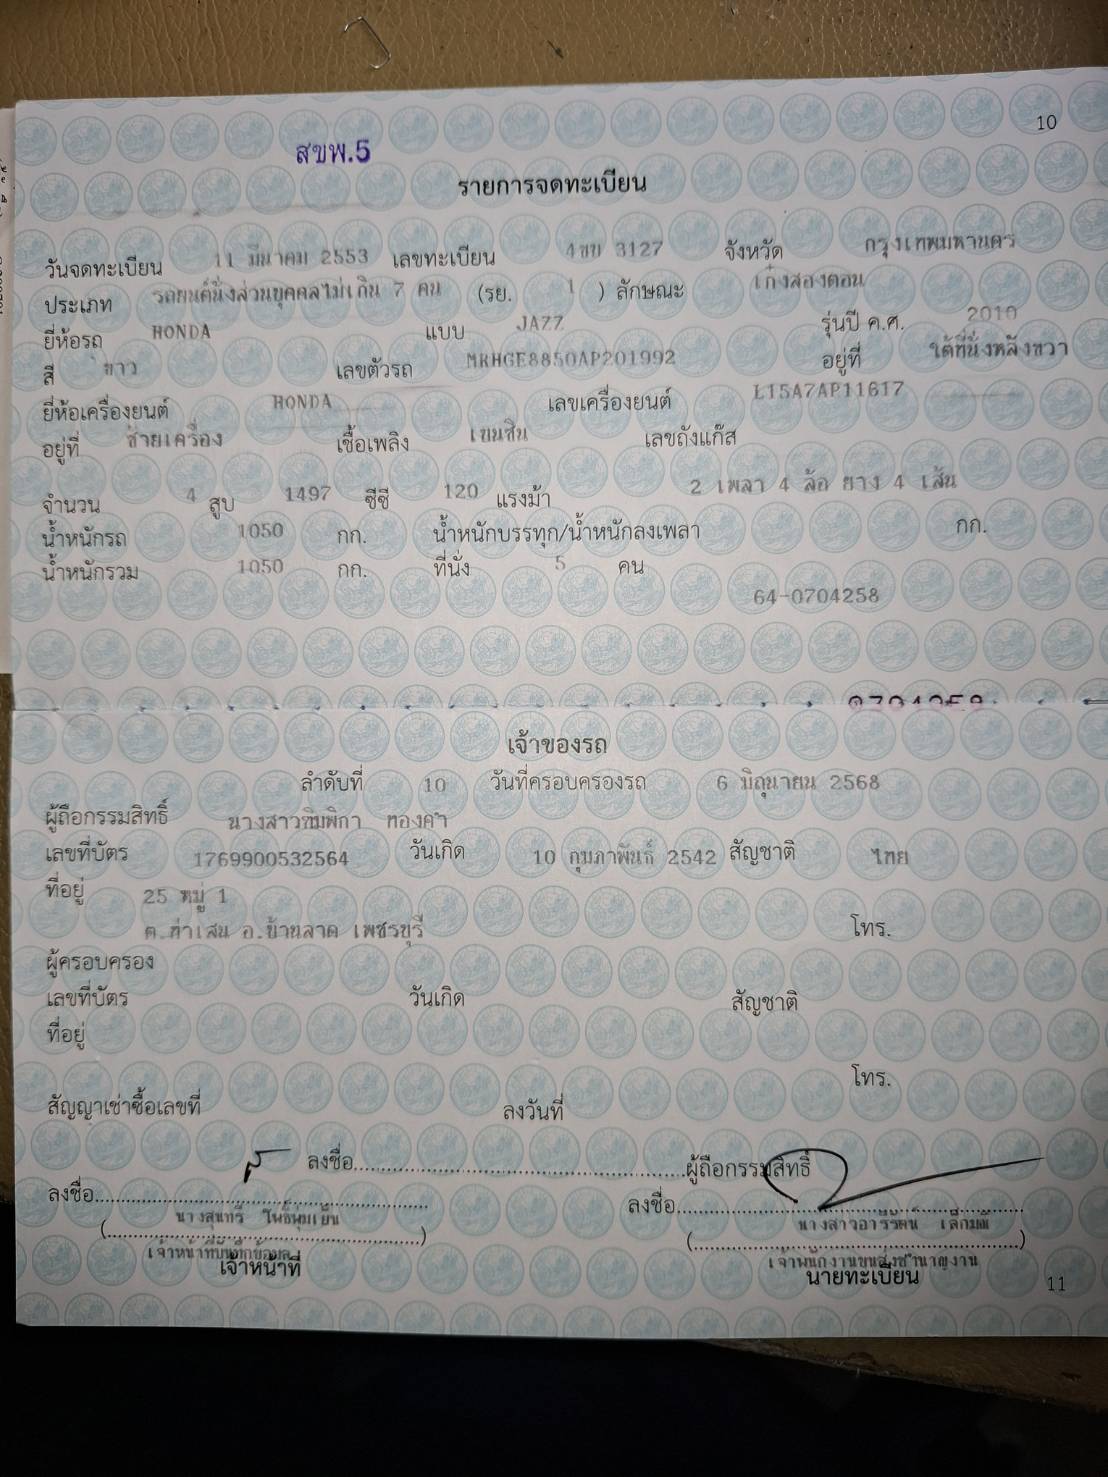 10
สขพ.5
รายการจดทะเบียน
วันจดทะเบียน 11 มีนาคม 2553 เลขทะเบียน 4ขบ 3127 จังหวัด กรุงเทพมหานคร
ประเภท รถยนต์นั่งส่วนบุคคลไม่เกิน 7 คน (รย. 1 ) ลักษณะ เก๋งสองตอน
ยี่ห้อรถ HONDA แบบ JAZZ รุ่นปี ค.ศ. 2010
สี ขาว เลขตัวรถ MRHGE8850AP201992 อยู่ที่ ใต้ที่นั่งหลังขวา
ยี่ห้อเครื่องยนต์ HONDA เลขเครื่องยนต์ L15A7AP11617
อยู่ที่ ซ้ายเครื่อง เชื้อเพลิง เบนซิน เลขถังแก๊ส
จำนวน 4 สูบ 1497 ซีซี 120 แรงม้า 2 เพลา 4 ล้อ ยาง 4 เส้น
น้ำหนักรถ 1050 กก. น้ำหนักบรรทุก/น้ำหนักลงเพลา กก.
น้ำหนักรวม 1050 กก. ที่นั่ง 5 คน
64-0704258
เจ้าของรถ
ลำดับที่ 10 วันที่ครอบครองรถ 6 มิถุนายน 2568
ผู้ถือกรรมสิทธิ์ นางสาวพิมพิกา ทองคำ
เลขที่บัตร 1769900532564 วันเกิด 10 กุมภาพันธ์ 2542 สัญชาติ ไทย
ที่อยู่ 25 หมู่ 1
ต.ท่าเสน อ.บ้านลาด เพชรบุรี โทร.
ผู้ครอบครอง
เลขที่บัตร วันเกิด สัญชาติ
ที่อยู่
โทร.
สัญญาเช่าซื้อเลขที่ ลงวันที่
ลงชื่อ ผู้ถือกรรมสิทธิ์
ลงชื่อ ลงชื่อ
นางสุนทรี โพธิ์พุ่มเย็น นางสาวอารีรัตน์ เล็กมณี
( ) ( )
เจ้าหน้าที่บันทึกข้อมูล เจ้าพนักงานขนส่งชำนาญงาน
เจ้าหน้าที่ นายทะเบียน
11